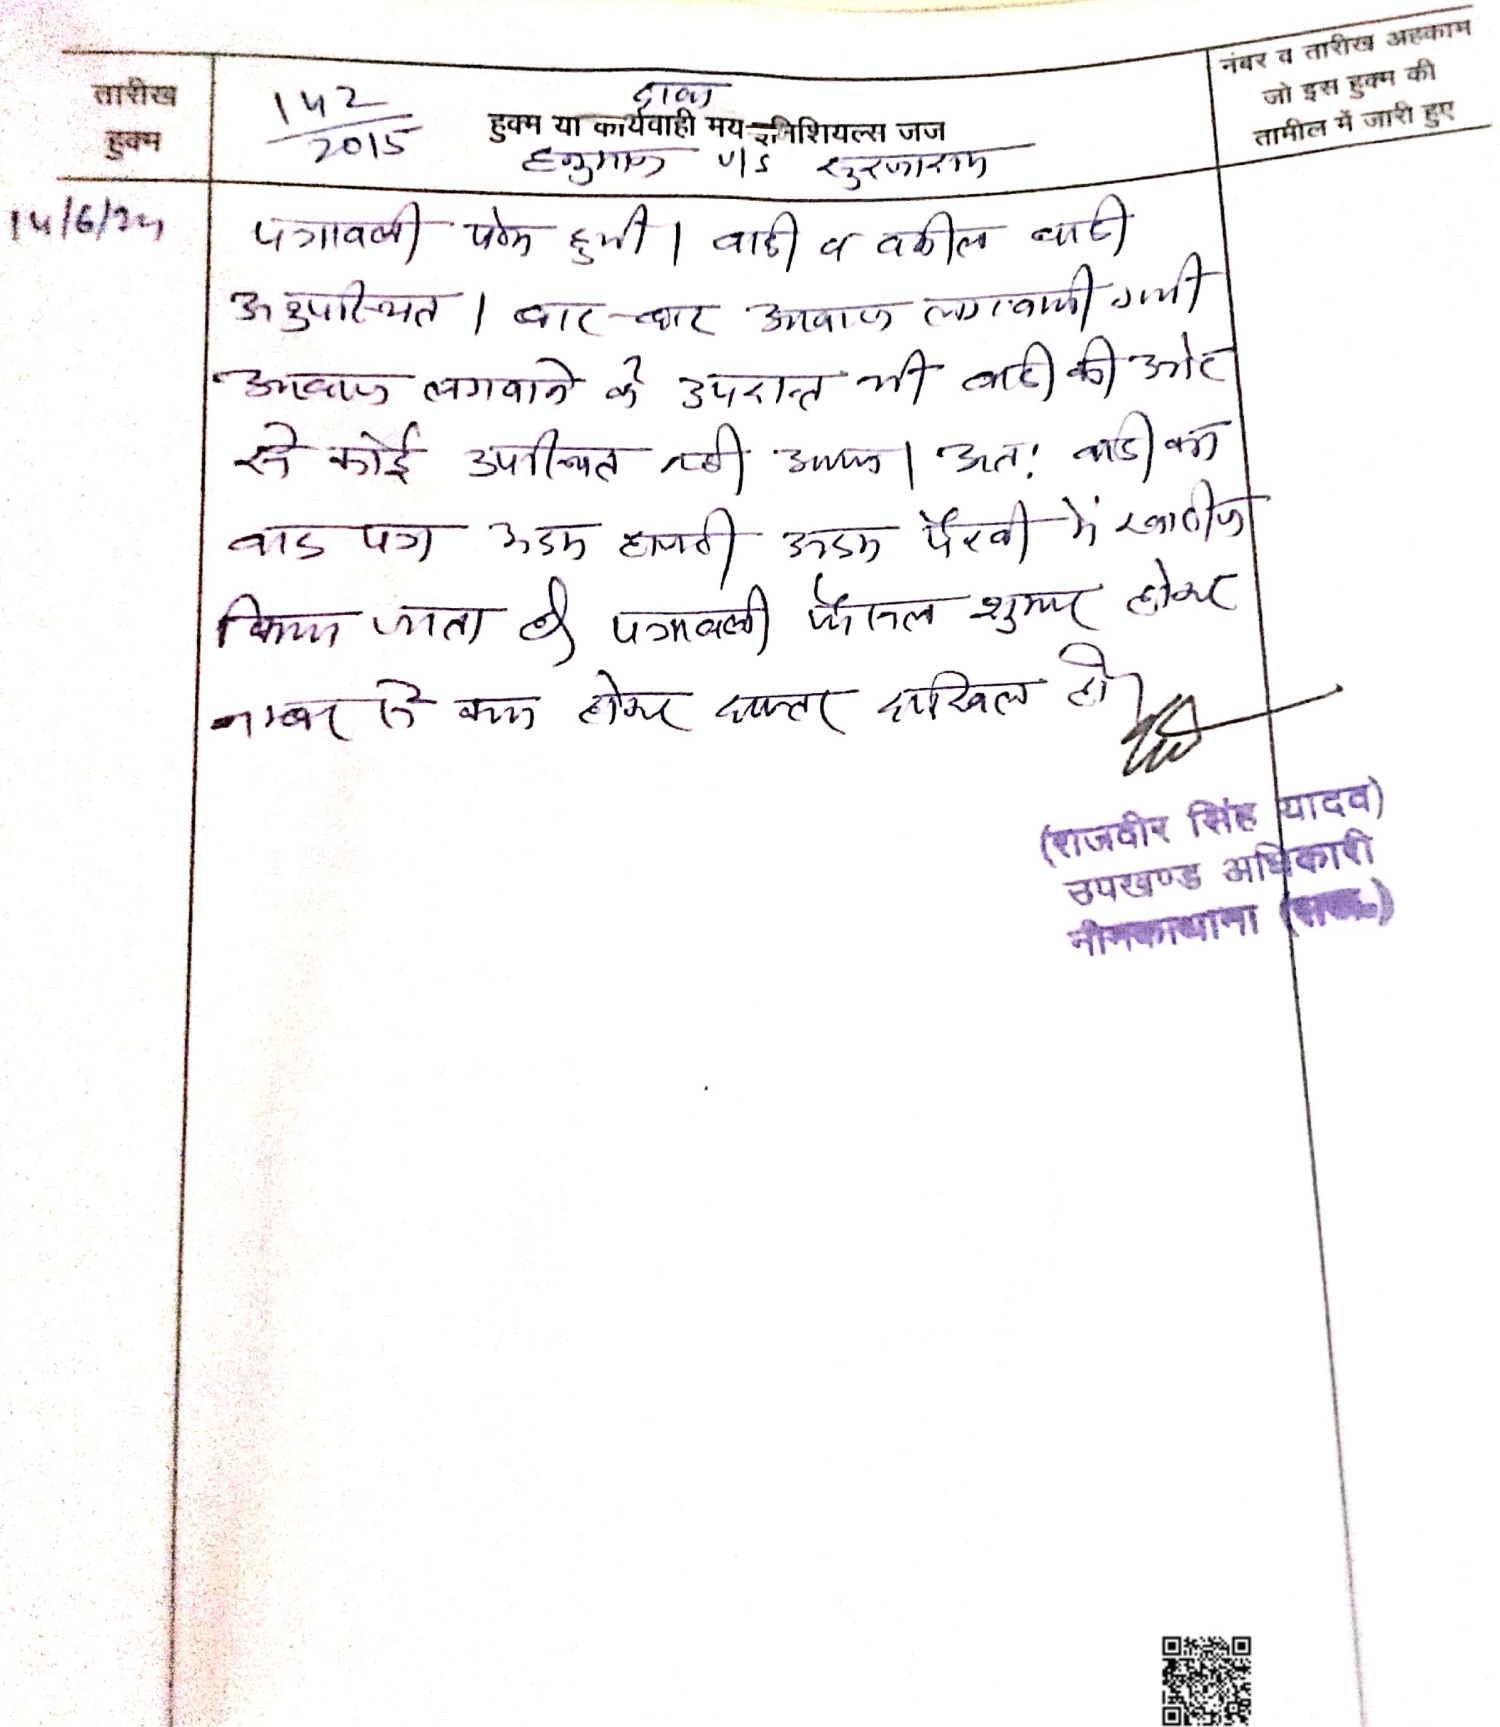 तारीख
हुक्म
142
2015
दावा
हुक्म या कार्यवाही मय इनिशियल्स जज
हनुमान v/s सुरजाराम
नंबर व तारीख अहकाम
जो इस हुक्म की
तामील में जारी हुए
14/6/24
पत्रावली पेश हुयी। वादी व वकील वादी
अनुपस्थित। बार-बार आवाज लगवायी गयी
आवाज लगवाने के उपरान्त भी वादी की ओर
से कोई उपस्थित नही आया। अतः वादी का
वाद पत्र अदम हाजरी अदम पैरवी में खारीज
किया जाता है पत्रावली फैसल शुमार होकर
नम्बर से कम होकर दफ्तर दाखिल हो
(राजवीर सिंह यादव)
उपखण्ड अधिकारी
नीमकाथाना (राज०)